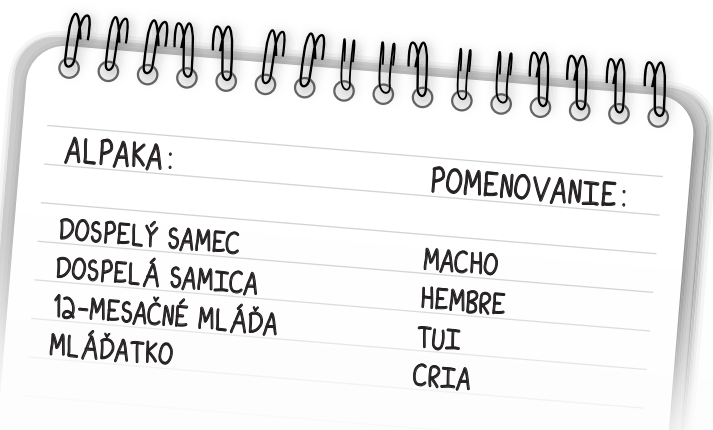 ALPAKA: POMENOVANIE:
DOSPELÝ SAMEC MACHO
DOSPELÁ SAMICA HEMBRE
12-MESAČNÉ MLÁĎA TUI
MLÁĎATKO CRIA